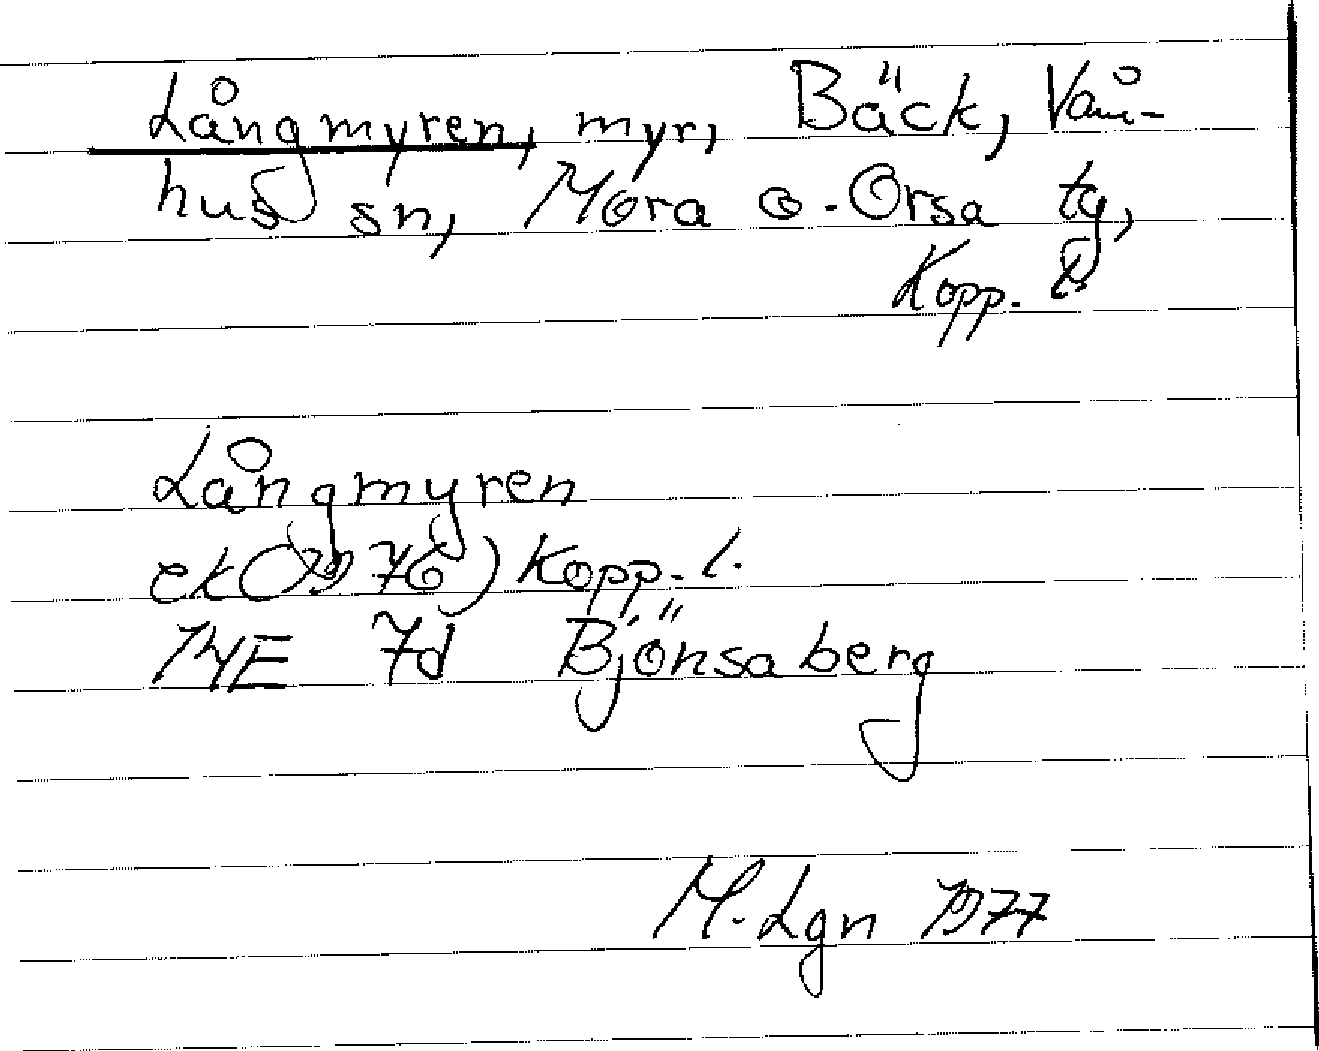 Långmyren, myr, Bäck, Våm-
hus sn, Mora o. Orsa tg,
Kopp. l.
Långmyren
ek (1976) Kopp. l.
14E 7d Björnsaberg
M. Lgn 1977